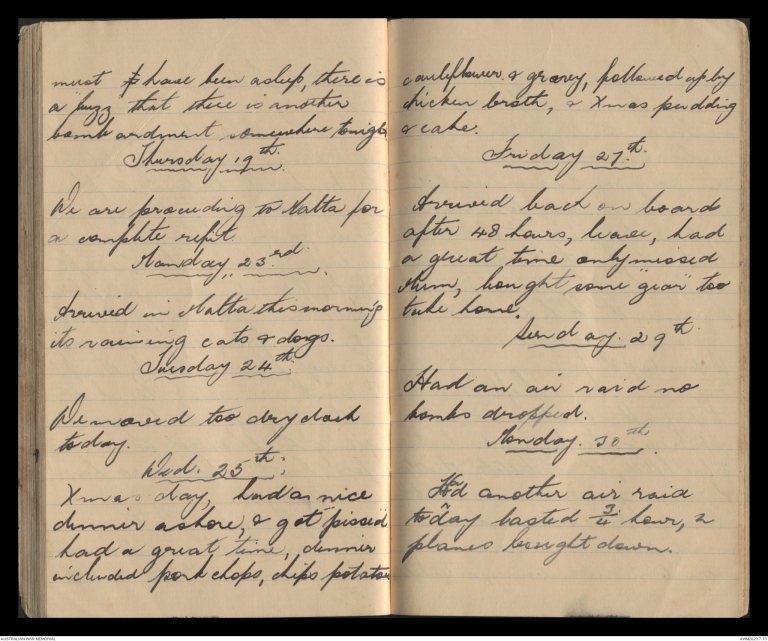 must to have been asleep, there is
a "fuzz" that there is another
bombardment somewhere tonight
Thursday 19th.
We are proceeding to Malta for
a complete refit.
Monday, 23rd.
Arrived in Malta this morning
its raining cats & dogs.
Tuesday 24th.
We moved too dry dock
today.
Wed. 25th.
Xmas day, had a nice
dinner ashore, & got pissed
had a great time, dinner
included pork chops, chips potatoes
cauliflower & gravy, followed up by
chicken broth, & Xmas pudding
& cake.
Friday 27th.
Arrived back on board
after 48 hours, leave, had
a great time only missed
Mum, bought some "gear" too
take home.
Sunday. 29th.
Had an air raid no
bombs dropped.
Monday. 30th.
Had another air raid
today lasted 3/4 hour, 2
planes bought down.
AUSTRALIAN WAR MEMORIAL